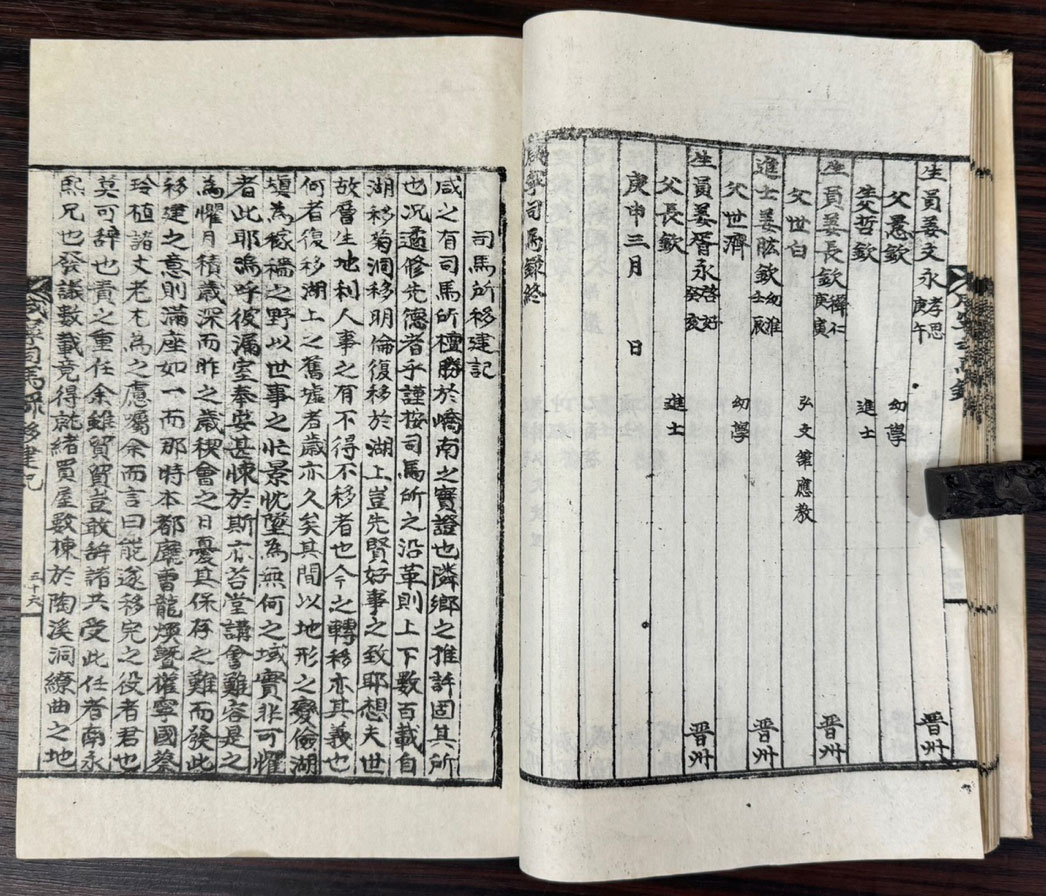 生員姜文永 孝思 庚午 晋州
父愚欽 幼學
生父哲欽 進士
生員姜長欽 庚寅 晋州
父世白 弘文館應教
進士姜肱欽 壬辰 晋州
父世濟 幼學
生員姜胥永 啓好 癸亥 晋州
父長欽 進士
庚申三月 日
咸寧司馬錄終
司馬所移建記
咸之有司馬所檀勝於嶠南之實證也隣鄉之推許固其所
也况遹修先德者乎謹按司馬所之沿革則上下數百載自
湖移菊洞移明倫復移於湖上豈先賢好事之致耶想夫世
故層生地利人事之有不得不移者也今之轉移亦其義也
何者復移湖上之舊墟者歲亦久矣其間以地形之變倫湖
填為稼穡之野以世事之忙景忱墜為無何之域實非可懼
者此耶嗚呼彼漏室奉安甚悚於斯亦苔堂講會難容是之
為懼月積歲深而昨之歲稧會之日憂其保存之難而發此
移建之意則滿座如一而那時本都廳曺龍煥曁權寧國蔡
玲植諸丈老尤為之慮囑余而言曰能遂移完之役者君也
莫可辞也責之重任余雖貿貿豈敢辞諸共受此任者南永
熙兄也發議數載竟得就緒買屋數棟於陶溪洞繚曲之地
咸寧司馬錄 移建記 五十六